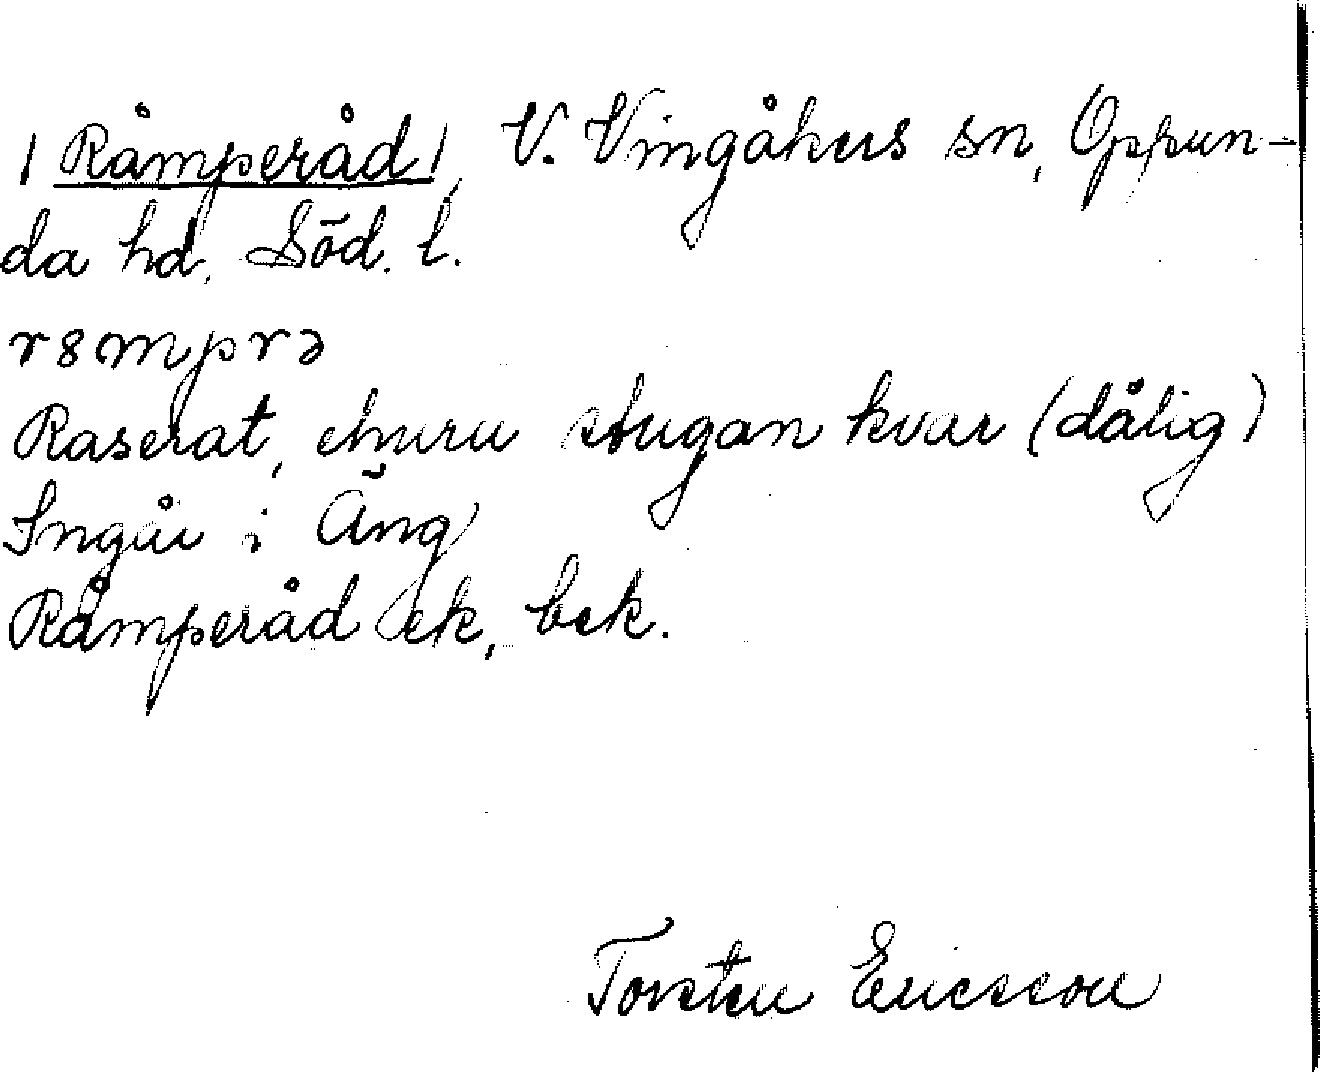 / Råmperåd /, V. Vingåkers sn, Oppun-
da hd, Söd. l.
r8mprə
Raserat, ehuru stugan kvar (dålig)
Ingår i Äng
Råmperåd ek, bek.
Torsten Ericsson